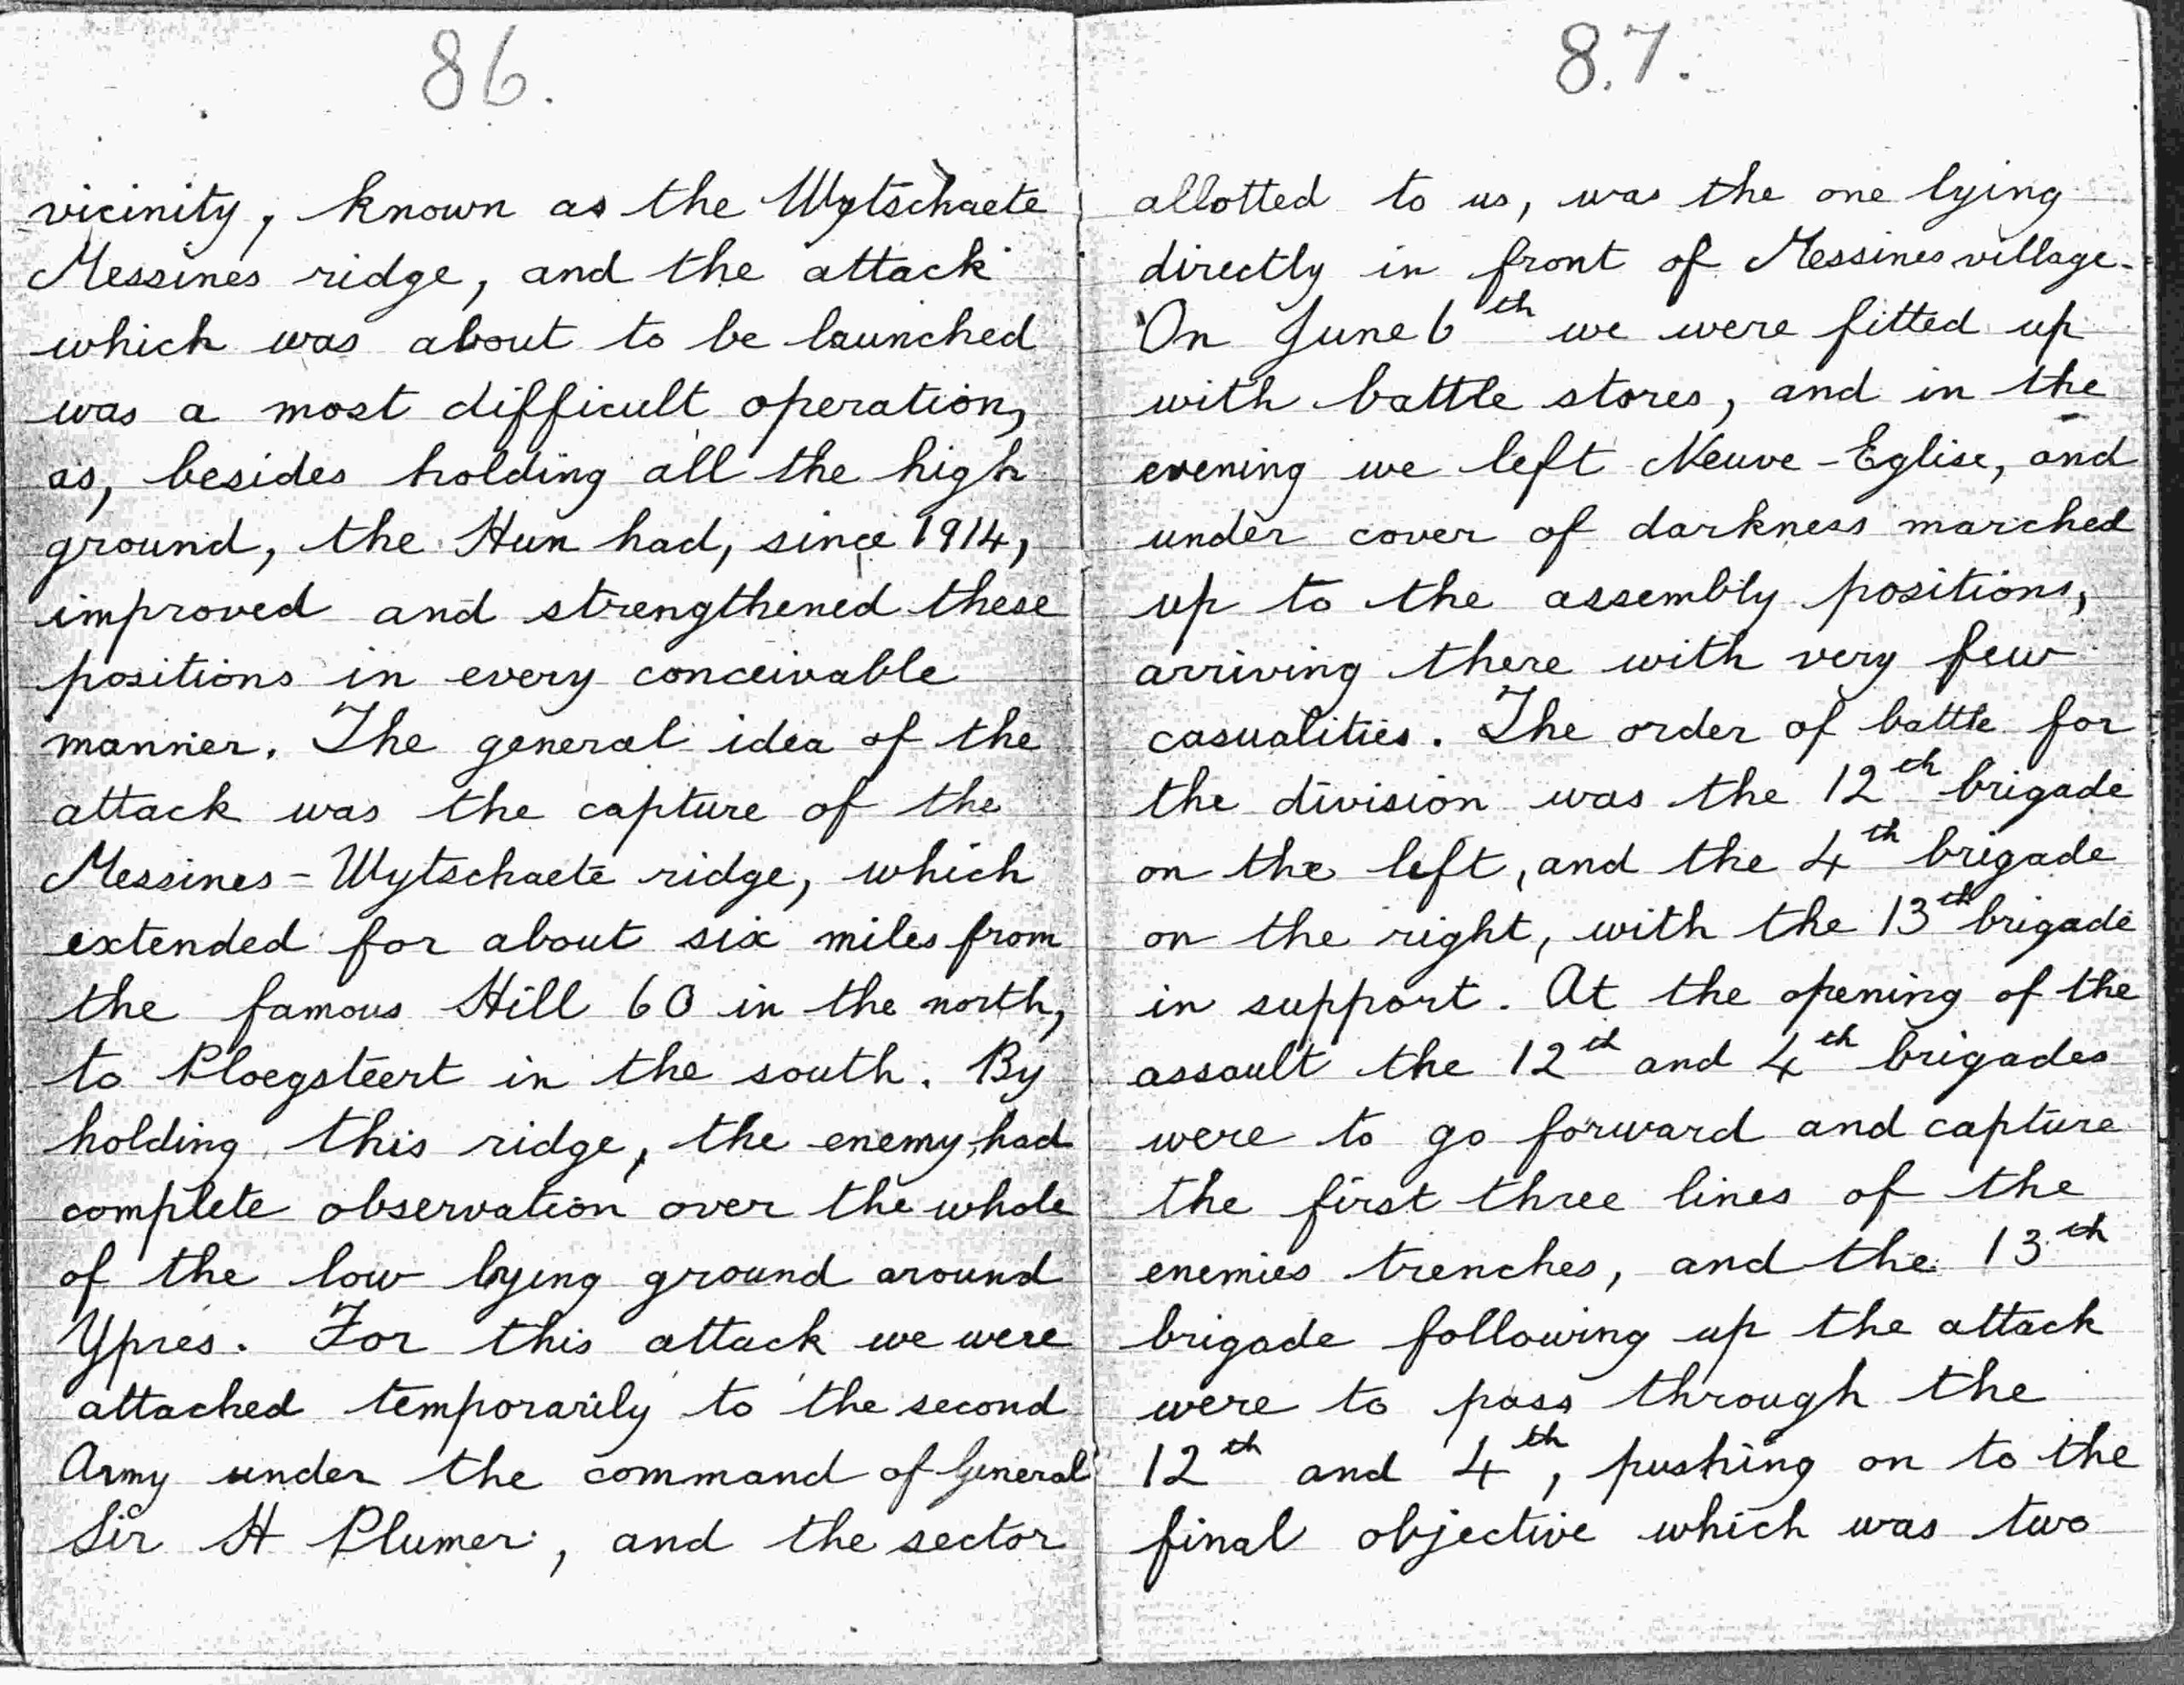 86.
vicinity, known as the Wytschaete
Messines ridge, and the attack
which was about to be launched
was a most difficult operation,
as, besides holding all the high
ground, the Hun had, since 1914,
improved and strengthened these
positions in every conceivable
manner. The general idea of the
attack was the capture of the
Messines - Wytschaete ridge, which
extended for about six miles from
the famous Hill 60 in the north,
to Ploegsteert in the south. By
holding this ridge, the enemy, had
complete observation over the whole
of the low lying ground around
Ypres. For this attack we were
attached temporarily to the second
Army under the command of General
Sir H Plumer, and the sector
87.
allotted to us, was the one lying
directly in front of Messines village.
On June 6th we were fitted up
with battle stores, and in the
evening we left Neuve-Eglise, and
under cover of darkness marched
up to the assembly positions,
arriving there with very few
casualities. The order of battle for
the division was the 12th brigade
on the left, and the 4th brigade
on the right, with the 13th brigade
in support. At the opening of the
assault the 12th and 4th brigades
were to go forward and capture
the first three lines of the
enemies trenches, and the 13th
brigade following up the attack
were to pass through the
12th and 4th, pushing on to the
final objective which was two